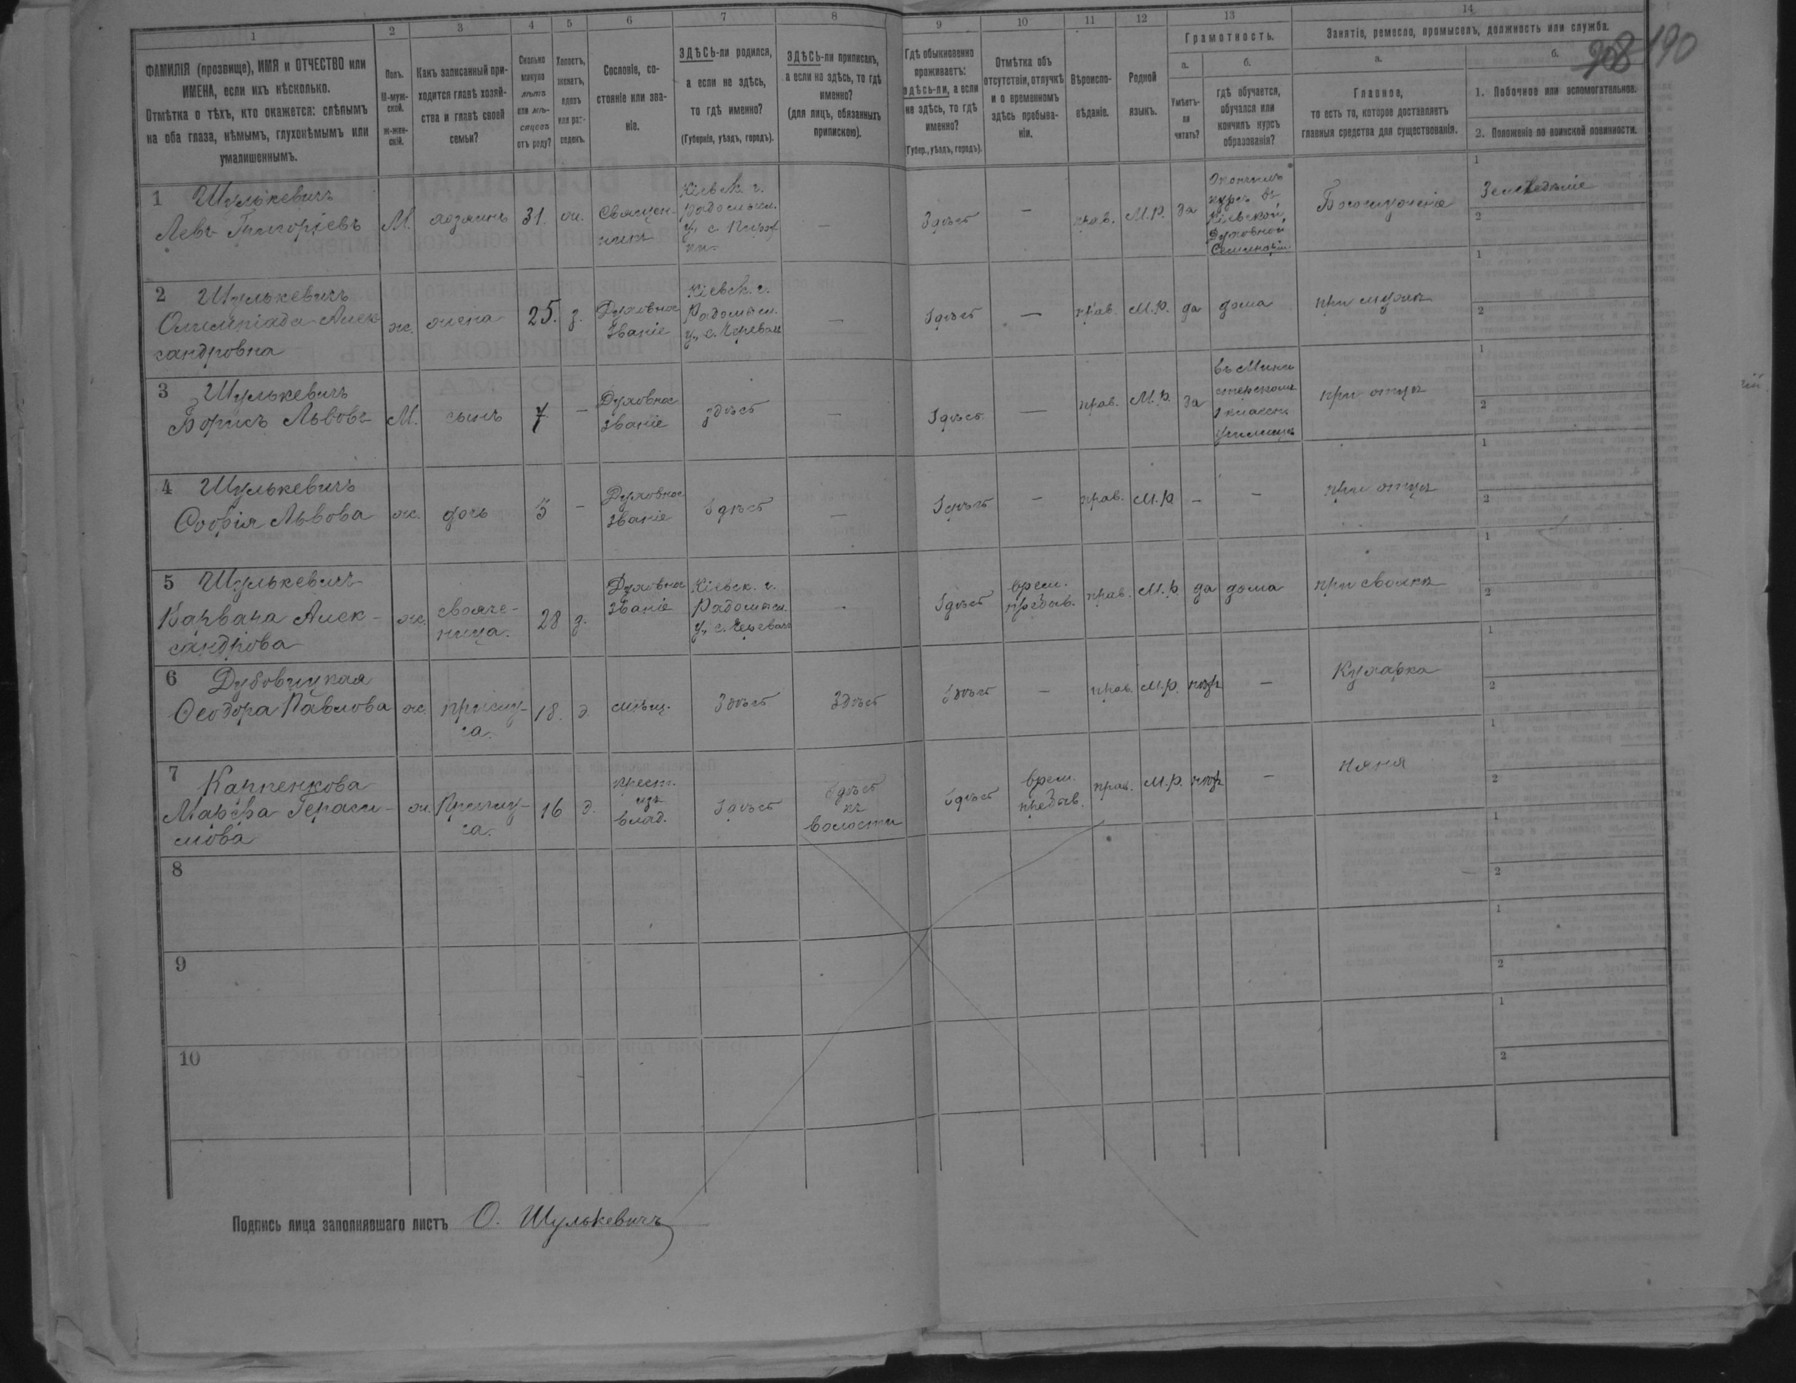 1 2 3 4 5 6 7 8 9 10 11 12 13 14
ФАМИЛІЯ (прозвище), ИМЯ и ОТЧЕСТВО или
ИМЕНА, если ихъ нѣсколько.
Отмѣтка о тѣхъ, кто окажется: слѣпымъ
на оба глаза, нѣмымъ, глухонѣмымъ или
умалишеннымъ.
Полъ.
М-муж-
ской.
ж-жен-
скій.
Какъ записанный при-
ходится главѣ хозяй-
ства и главѣ своей
семьи?
Сколько
минуло
лѣтъ
или мѣ-
сяцевъ
отъ роду?
Холостъ,
женатъ,
вдовъ
или раз-
веденъ.
Сословіе, со-
стояніе или зва-
ніе.
ЗДѢСЬ-ли родился,
а если не здѣсь,
то гдѣ именно?
(Губернія, уѣздъ, городъ).
ЗДѢСЬ-ли приписанъ,
а если не здѣсь, то гдѣ
именно?
(для лицъ, обязанныхъ
припискою).
Гдѣ обыкновенно
проживаетъ:
здѣсь-ли, а если
не здѣсь, то гдѣ
именно?
(Губер., уѣздъ, городъ).
Отмѣтка объ
отсутствіи, отлучкѣ
и о временномъ
здѣсь пребыва-
ніи.
Вѣроиспо-
вѣданіе.
Родной
языкъ.
Грамотность.
а.
Умѣетъ-
ли
читать?
б.
гдѣ обучается,
обучался или
кончилъ курсъ
образованія?
Занятіе, ремесло, промыселъ, должность или служба.
а.
Главное,
то есть то, которое доставляетъ
главныя средства для существованія.
б.
1. Побочное или вспомогательное.
2. Положеніе по воинской повинности.
190
1 Шулькевичъ
Левъ Григоріевъ
М.
хозяинъ
31.
ж.
Священ-
никъ
Кіевск. г.
Радомысл.
у, с.
—
Здѣсь
—
прав.
М.Р.
да
Окончилъ
курсъ въ
Кіевской
Духовной
Семинаріи
Богослуженіе
1 Земледѣліе
2
2 Шулькевичъ
Олимпіада Алек
сандровна
ж.
жена
25.
з.
Духовное
званіе
Кіевск. г.
Радомысл.
у., с.
—
Здѣсь
—
прав.
М.Р.
да
дома
при мужѣ
1
2
3 Шулькевичъ
Борисъ Львовъ
М.
сынъ
7
—
Духовное
званіе
здѣсь
—
Здѣсь
—
прав.
М.Р.
да
въ Мини
стерскомъ
классн.
училищѣ
при отцѣ
1
2
4 Шулькевичъ
Софія Львова
ж.
дочь
5
—
Духовное
званіе
Здѣсь
—
Здѣсь
—
прав.
М.Р.
—
—
при отцѣ
1
2
5 Шулькевичъ
Варвара Алек-
сандрова
ж.
своячe-
ница.
28
д.
Духовное
званіе
Кіевск. г.
Радомысл.
у., с.
—
Здѣсь
врем.
пребыв.
прав.
М.Р
да
дома
при своякѣ
1
2
6 Дубовицкая
Ѳеодора Павлова
ж.
прислу-
га.
18.
д.
мѣщ.
Здѣсь
Здѣсь
Здѣсь
—
прав.
М.Р.
—
Кухарка
1
2
7 Карпенкова
Марѳа Гераси-
мова
ж.
Прислу-
га.
16
д.
крест.
изъ
влад.
Здѣсь
Здѣсь
къ
волости
Здѣсь
врем.
пребыв.
прав.
М.Р.
—
няня
1
2
8
1
2
9
1
2
10
1
2
Подпись лица заполнявшаго листъ О. Шулькевичъ